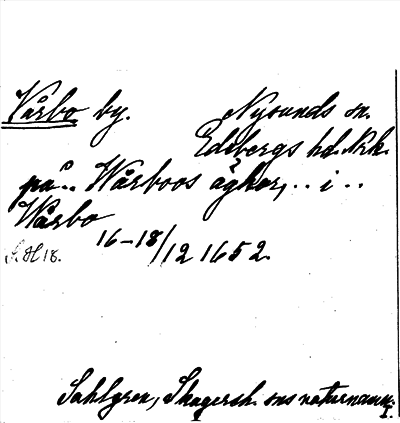 Vårbo by. Nysunds sn.
Edsbergs hd. Nrk.
på.. Wårboos ägher,.. i..
Wårbo
16-18/12 1652.
S. H 18.
Sahlgren, Skagersh. sns naturnamn.
I.